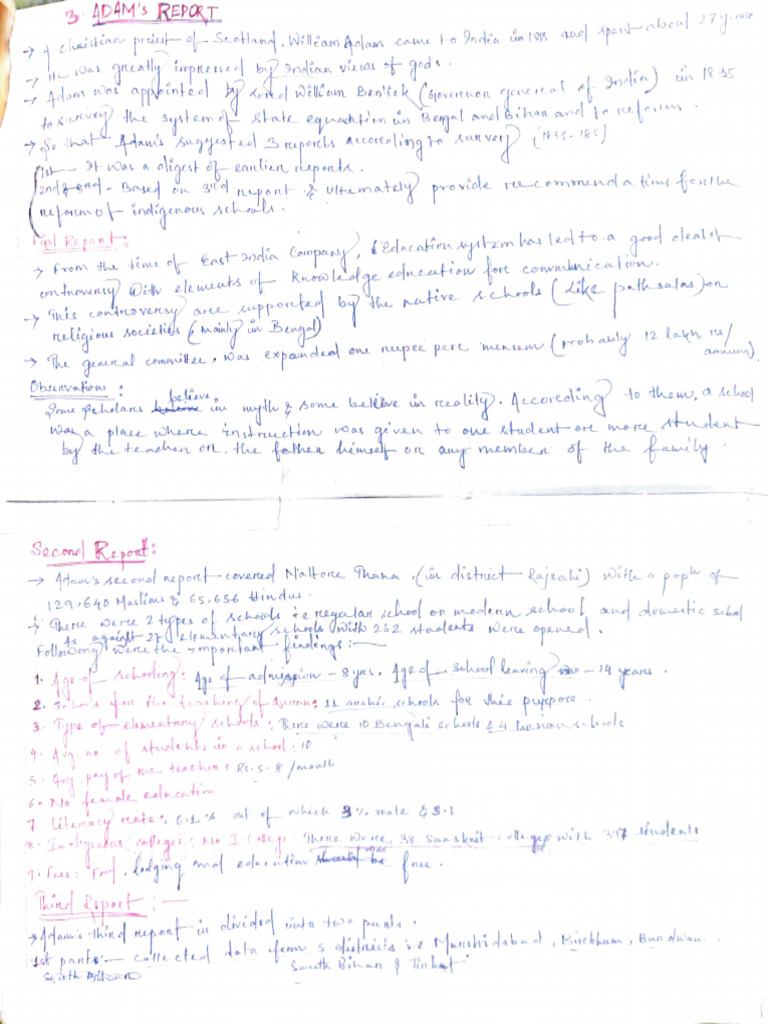 3. ADAM's REPORT
→ A Christian preist of Scotland, William Adam came to India in 18 and spent about 27 years.
→ He was greatly impressed by Indian views of gods.
→ Adam was appointed by Lord William Bentick (Governor general of India) in 1835
to survey the system of state equcation in Bengal and Bihar and to reform.
→ So that Adam's suggested 3 reports according to survey (1835-
1st - It was a digest of earlier reports.
2nd & 3rd - Based on 3rd report & ultemately provide recommendations for the
reform of indigenous schools.
First Report:
→ From the time of East India Company, Education system has led to a good deal of
controversy with elements of knowledge education for communication.
→ This controversy are supported by the native schools (Like pathsalas) or
religious societies (mainly in Bengal)
→ The general committee, was expanded one rupee per mensem (probably 12 lakh rs/
annum).
Observations:
Some scholars believe in myth & some believe in reality. According to them, a school
was a place where instruction was given to one student are more student
by the teacher or the father himself or any member of the family.
Second Report:
→ Adam's second report covered Nattore Thana, (in district Rajsahi) with a poph of
129,640 Muslims & 65,656 Hindus.
→ There were 2 types of schools i.e regular school or modern school and domestic schol
As against 27 elementary schools with 262 students were opened.
Following were the important findings:-
1. Age of schooling: Age of admission - 8 yrs, Age of school leaving - 14 years.
2. Schools for the teaching of Quran: 11 arabic schools for this purpose.
3. Type of elementary schools: There were 10 Bengali schools & 4 Persian schools
4. Avg no. of students in a school: 10
5. Avg. pay of the teacher: Rs-5-8/month
6. No female education
7 Literacy rate: 6.1% out of which 3% male & 3.1
8. Indigenous colleges: No I. College There were 38 Sanskrit colleges with 397 students
9. Fees: Food, lodging and education free.
Third Report:-
→ Adam's third report in divided into two parts.
1st part:- collected data from 5 districts i.e Murshidabad, Birbhum, Burdwan
South Bihar & Tirhut